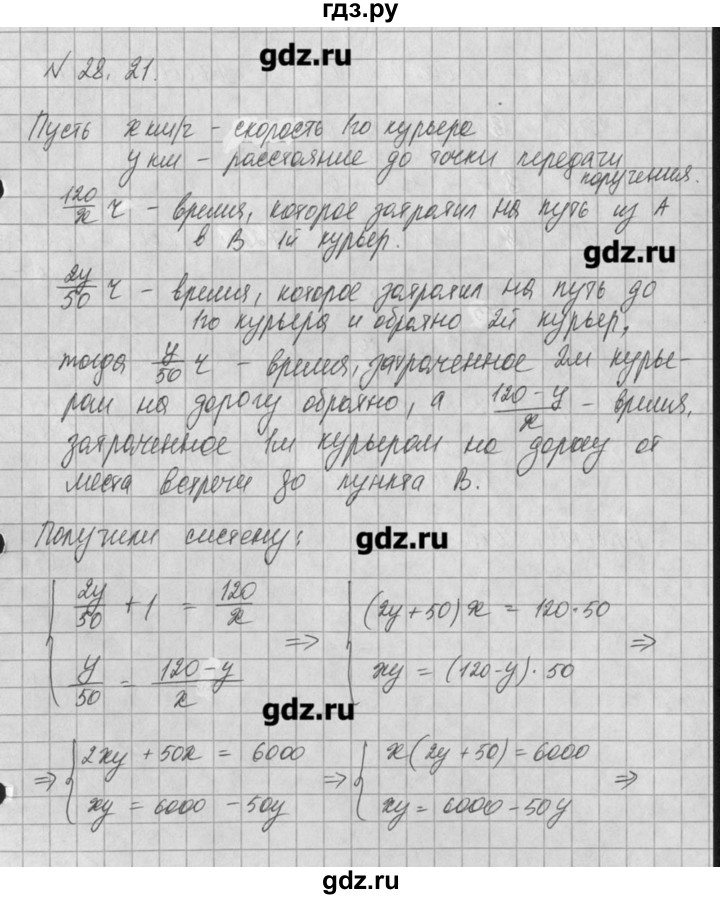 гдз.ру
gdz.ru
N 28.21.
Пусть x км/ч - скорость 1го курьера
y км - расстояние до точки передачи
поручения.
120/x ч - время, которое затратил на путь из A
в B 1й курьер.
gdz.ru
2y/50 ч - время, которое затратил на путь до
1го курьера и обратно 2й курьер,
тогда y/50 ч - время, затраченное 2м курье-
ром на дорогу обратно, а (120-y)/x - время,
затраченное 1м курьером на дорогу от
места встречи до пункта B.
Получили систему:
gdz.ru
{ 2y/50 + 1 = 120/x => { (2y+50)x = 120·50 =>
y/50 = (120-y)/x xy = (120-y)·50
gdz.ru
=> { 2xy + 50x = 6000 => { x(2y+50) = 6000 =>
xy = 6000 - 50y xy = 6000 - 50y
gdz.ru